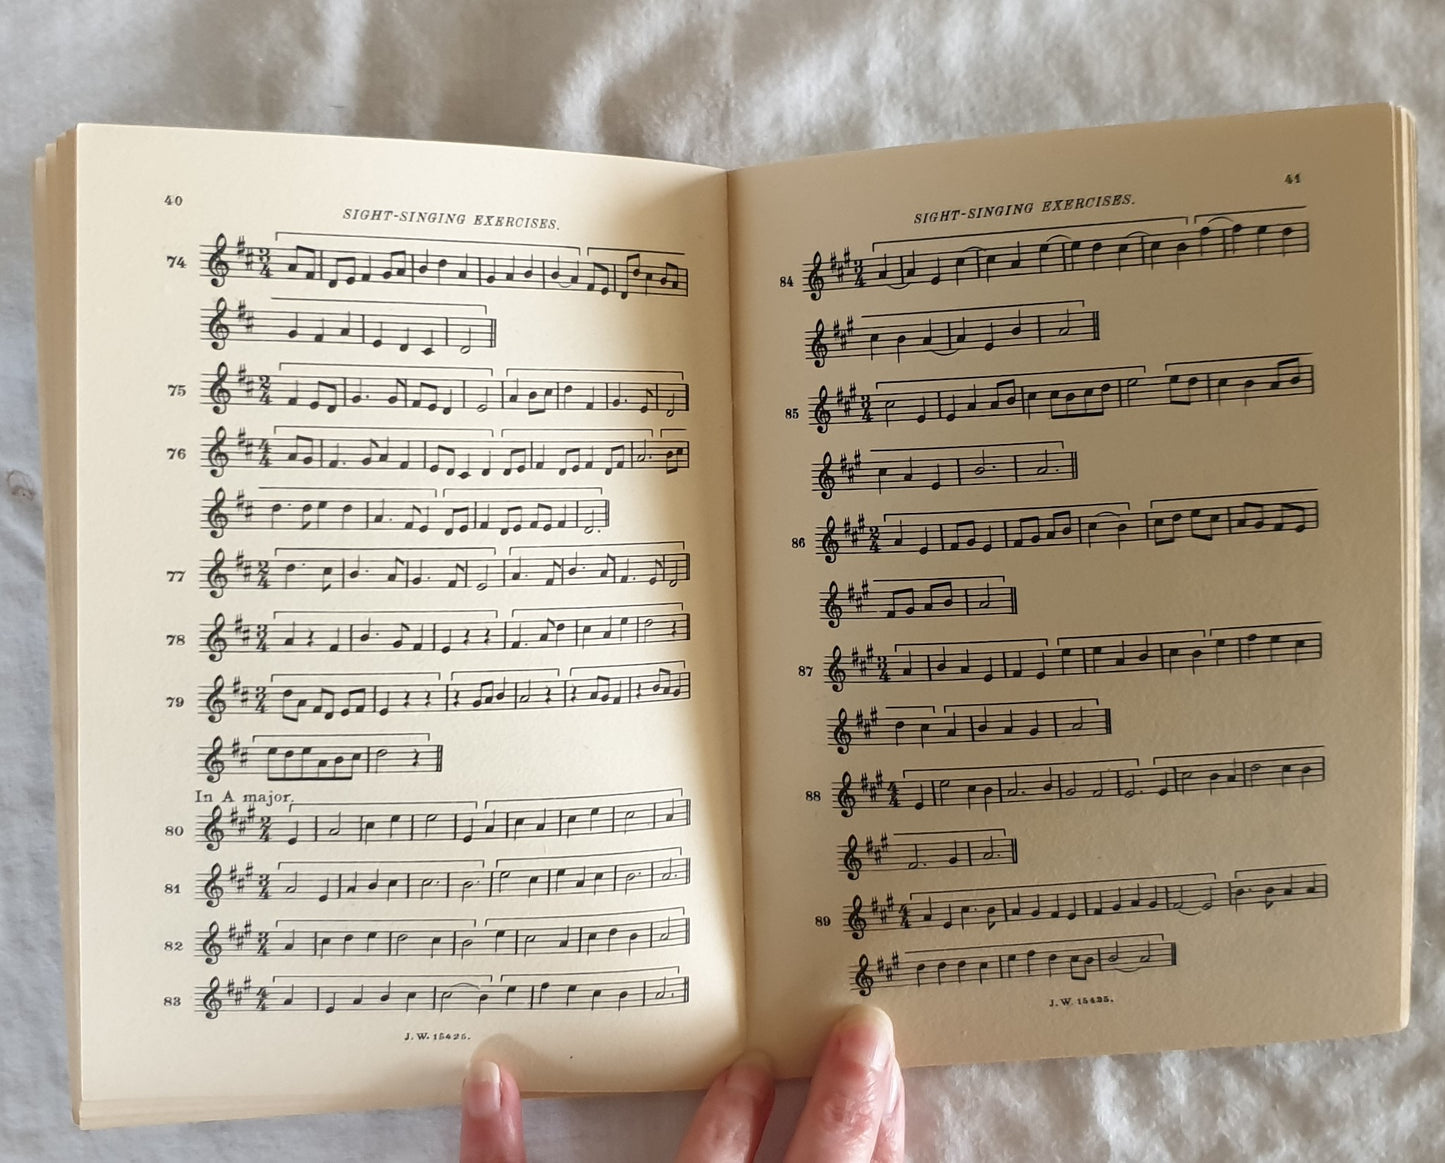 40
SIGHT-SINGING EXERCISES.
74
75
76
77
78
79
In A major.
80
81
82
83
J. W. 15425.
41
SIGHT-SINGING EXERCISES.
84
85
86
87
88
89
J. W. 15425.